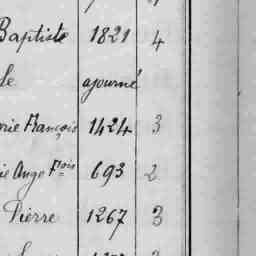 Baptiste 1821 4
le ajourné
rie François 1424 3
ie Ange F.ois 693 2
Pierre 1267 3